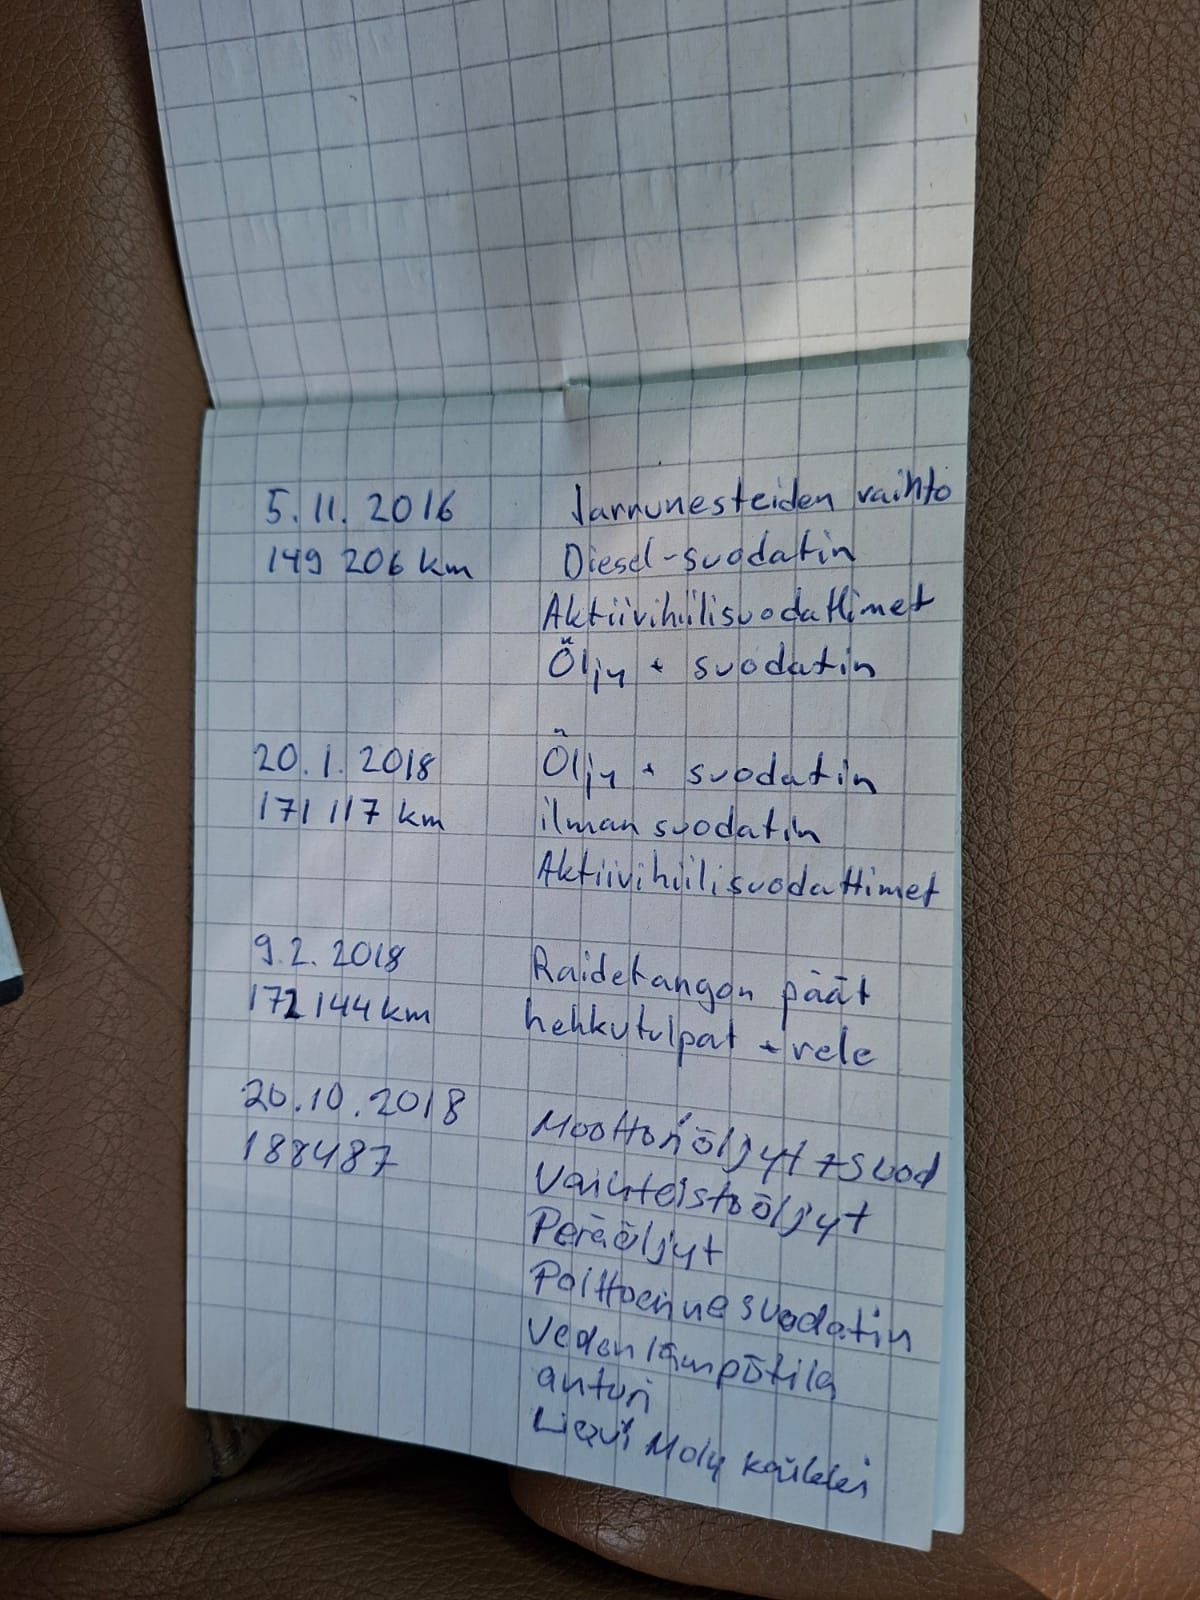 5.11.2016 Jarrunesteiden vaihto
149 206 km Diesel-suodatin
Aktiivihiilisuodattimet
Öljy + suodatin
20.1.2018 Öljy + suodatin
171 117 km ilman suodatin
Aktiivihiilisuodattimet
9.2.2018 Raidetangon päät
172 144 km hehkutulpat + rele
20.10.2018 Moottoriöljyt + suod
188487 Vaihteistoöljyt
Peräöljyt
Polttoainesuodatin
Veden lämpötila
anturi
Liqui Moly kaikki